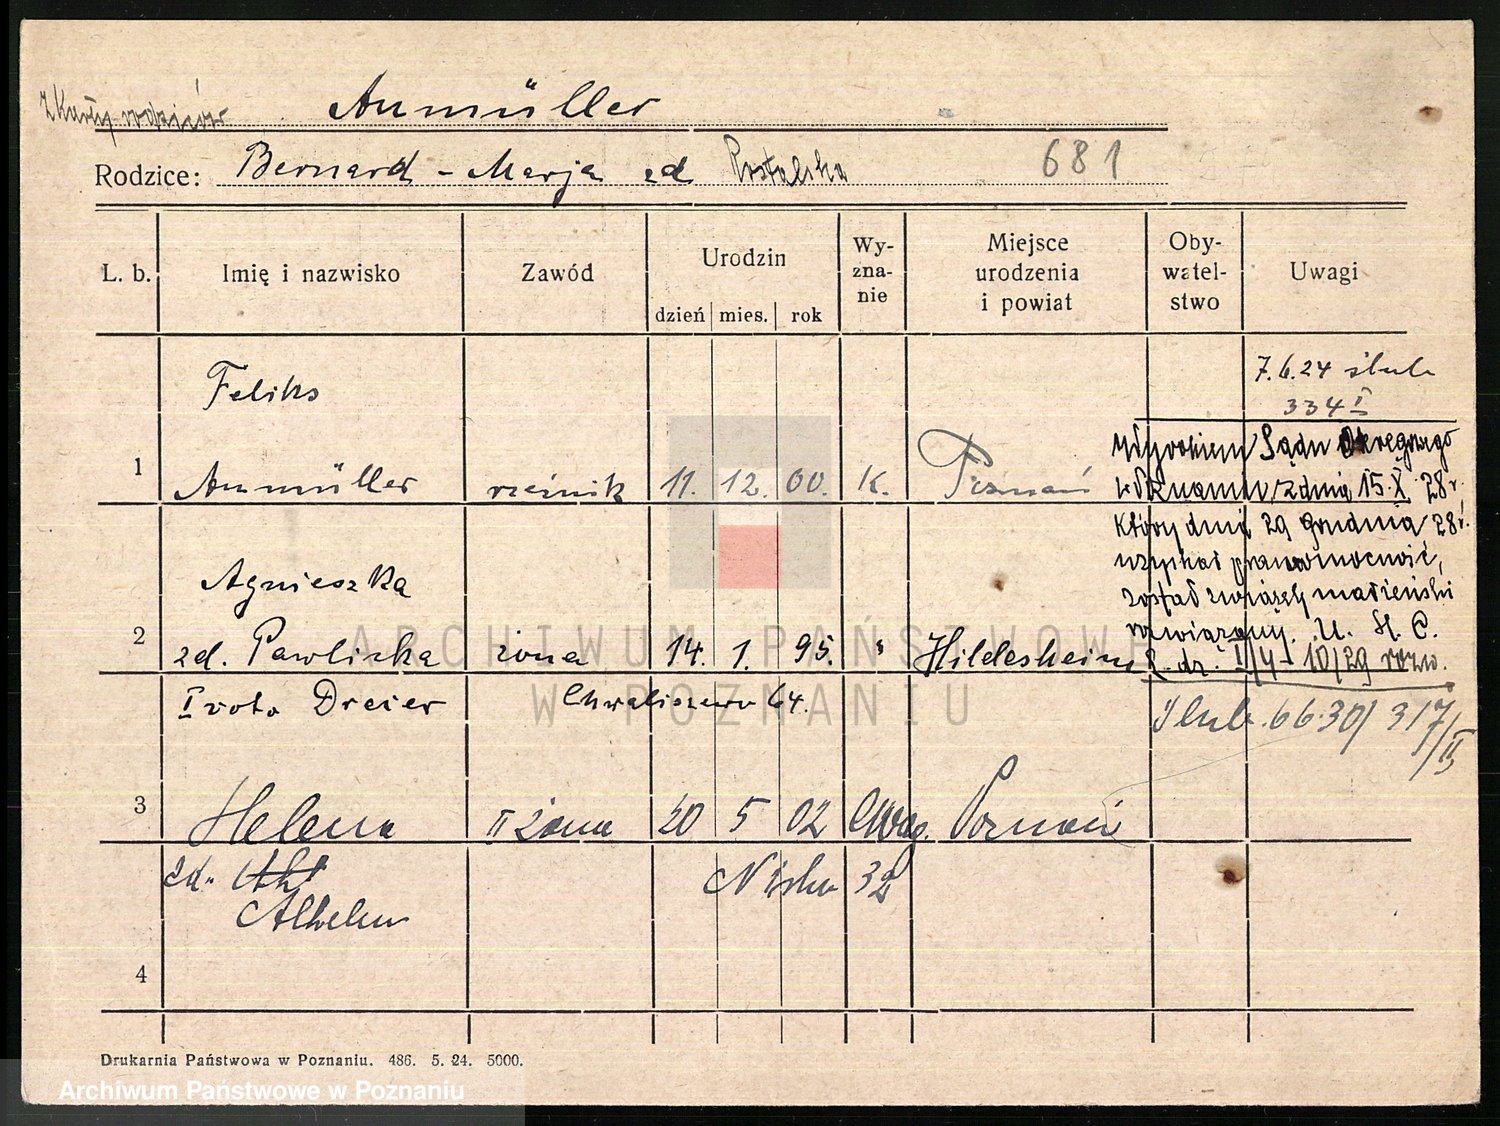 z karty rodziców
Aumüller
Rodzice: Bernard - Marja zd
681
L. b.
Imię i nazwisko
Zawód
Urodzin
dzień mies. rok
Wy-
zna-
nie
Miejsce
urodzenia
i powiat
Oby-
watel-
stwo
Uwagi
Feliks
7.6.24 ślub
334 I
1 Aumüller rzeźnik 11. 12. 00. K. Poznań
Wyrokiem Sądu Okręgowego
w Poznaniu z dnia 15.X.28 r.
który dnia 29 grudnia 28 r.
uzyskał prawomocność,
został związek małżeński
rozwiązany. U. S. C.
L. dz. I/4-10/29 rozw.
Agnieszka
2 zd. Pawlicka żona 14. 1. 95. " Hildesheim
I voto Dreier Chwaliszewo 64.
Ślub. 6 6.30 317/II
3 Helena II żona 20 5 02 Poznań
zd.
32
4
Drukarnia Państwowa w Poznaniu. 486. 5. 24. 5000.
ARCHIWUM PAŃSTWOWE
W POZNANIU
Archiwum Państwowe w Poznaniu